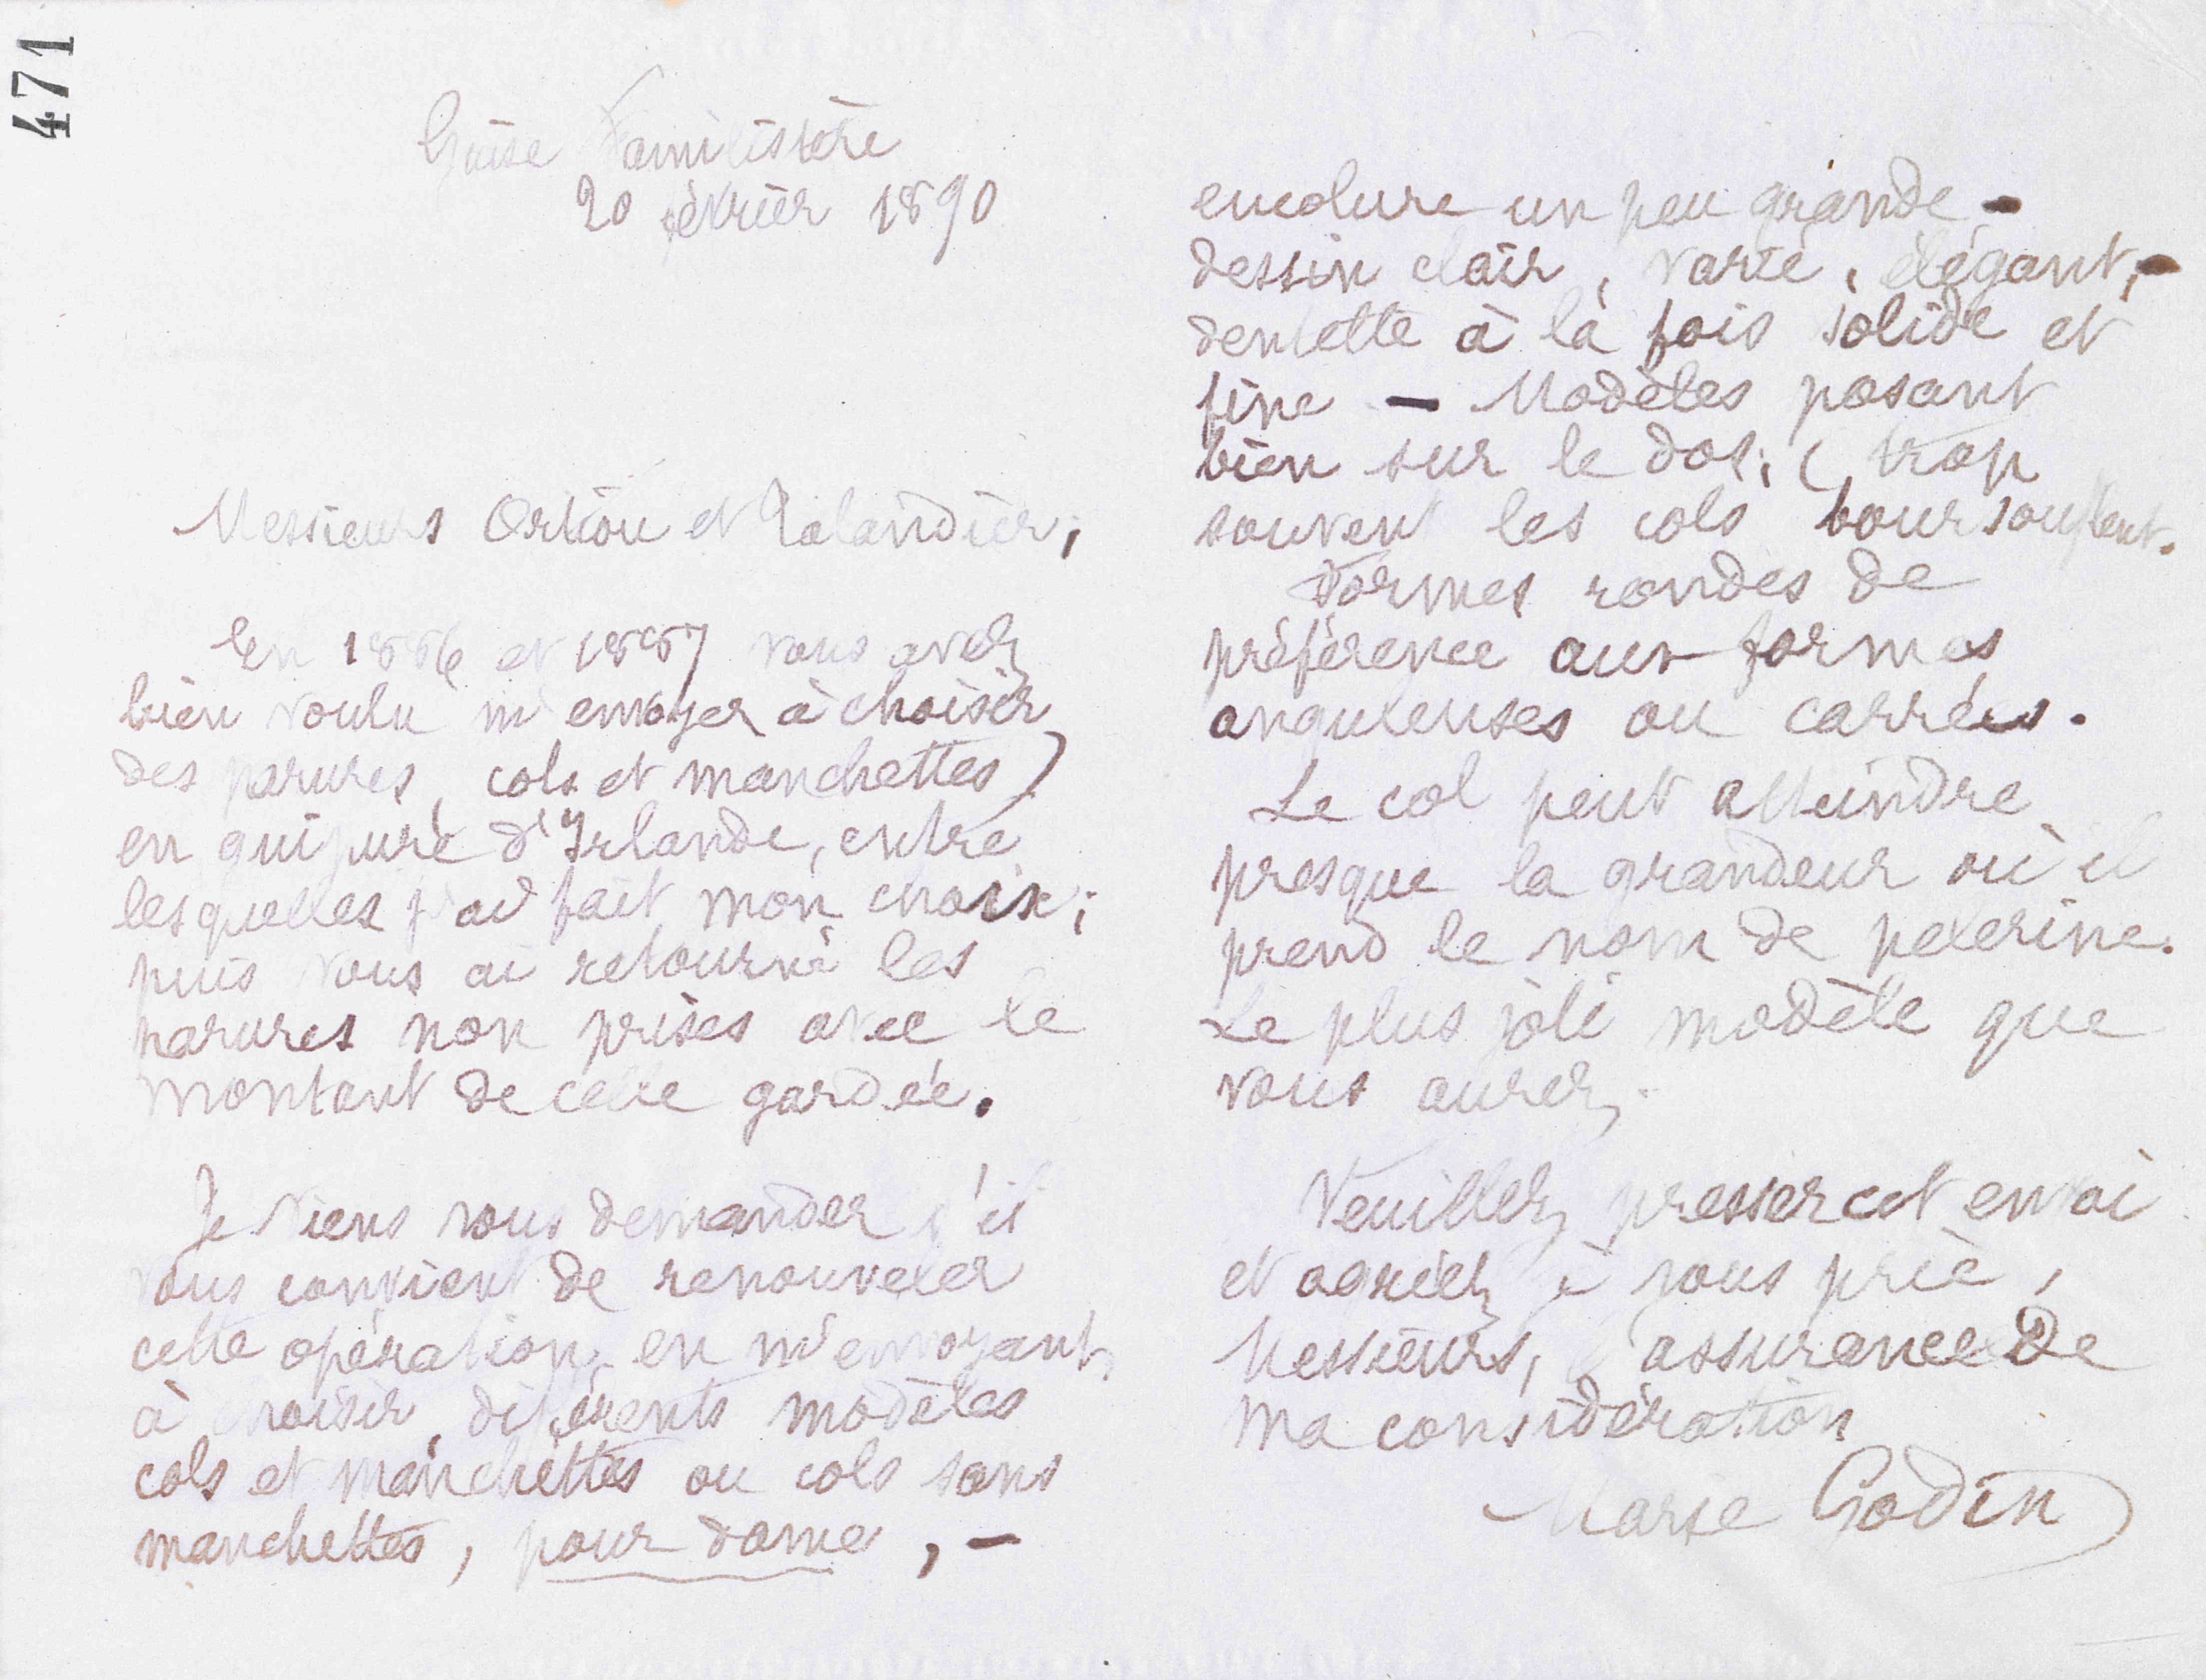 471
Guise Familistère
20 février 1890
Messieurs Ortiou et Talandier,
En 1886 et 1887 vous avez
bien voulu m'envoyer à choisir
des parures, cols et manchettes)
en guipure d'Irlande, entre
lesquelles j'ai fait mon choix;
puis vous ai retourné les
parures non prises avec le
montant de celle gardée.
Je viens vous demander s'il
vous convient de renouveler
cette opération, en m'envoyant,
à choisir, différents modèles
cols et manchettes ou cols sans
manchettes, pour dame, -
encolure un peu grande -
dessin clair, varié, élégant, -
dentelle à la fois solide et
fine - Modèles posant
bien sur le dos; (trop
souvent les cols boursouflent.
Formes rondes de
préférence aux formes
anguleuses ou carrées.
Le col peut atteindre
presque la grandeur où il
prend le nom de pelerine.
Le plus joli modèle que
vous aurez.
Veuillez presser cet envoi
et agréer, je vous prie,
Messieurs, l'assurance de
ma considération
Marie Godin